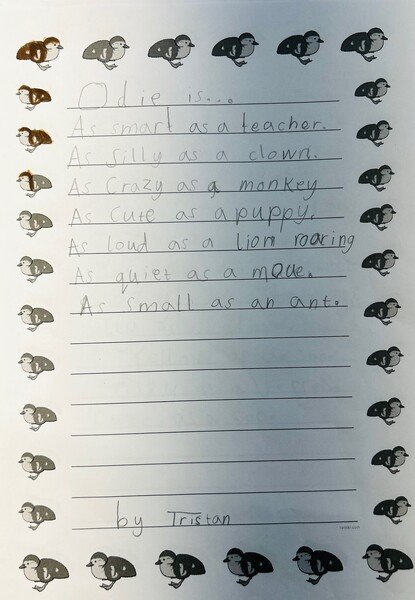 Odie is...
As smart as a teacher.
As Silly as a clown.
As Crazy as a monkey
As cute as a puppy.
As loud as a lion roaring
As quiet as a moue.
As small as an ant.
by Tristan